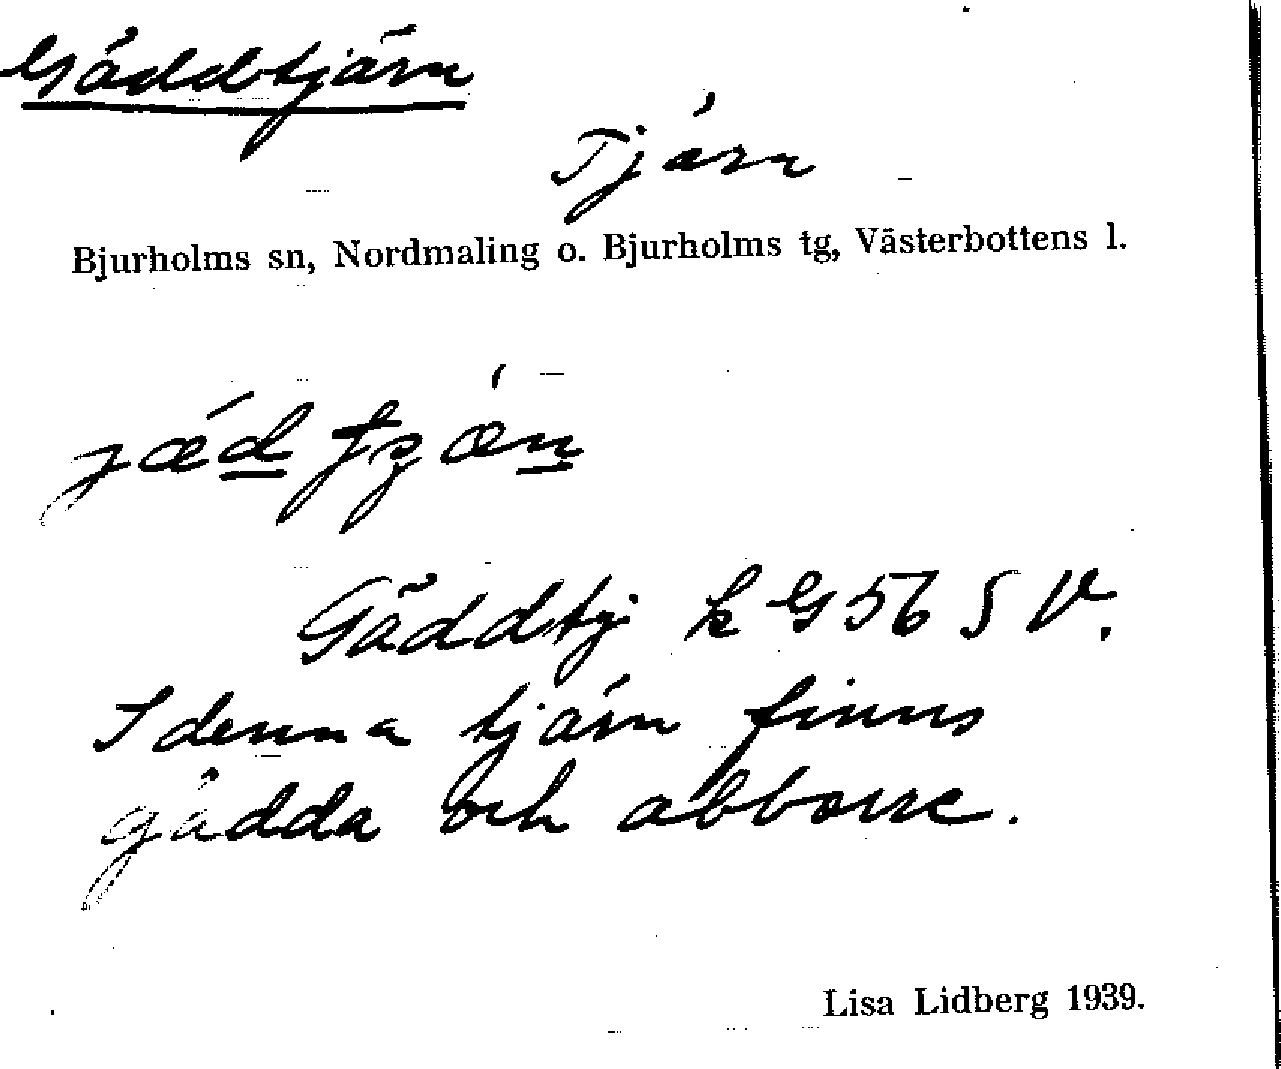 Gäddtjärn
Tjärn
Bjurholms sn, Nordmaling o. Bjurholms tg, Västerbottens l.
Gäddtj k G 56 S V.
I denna tjärn finns
gädda och abborre.
Lisa Lidberg 1939.